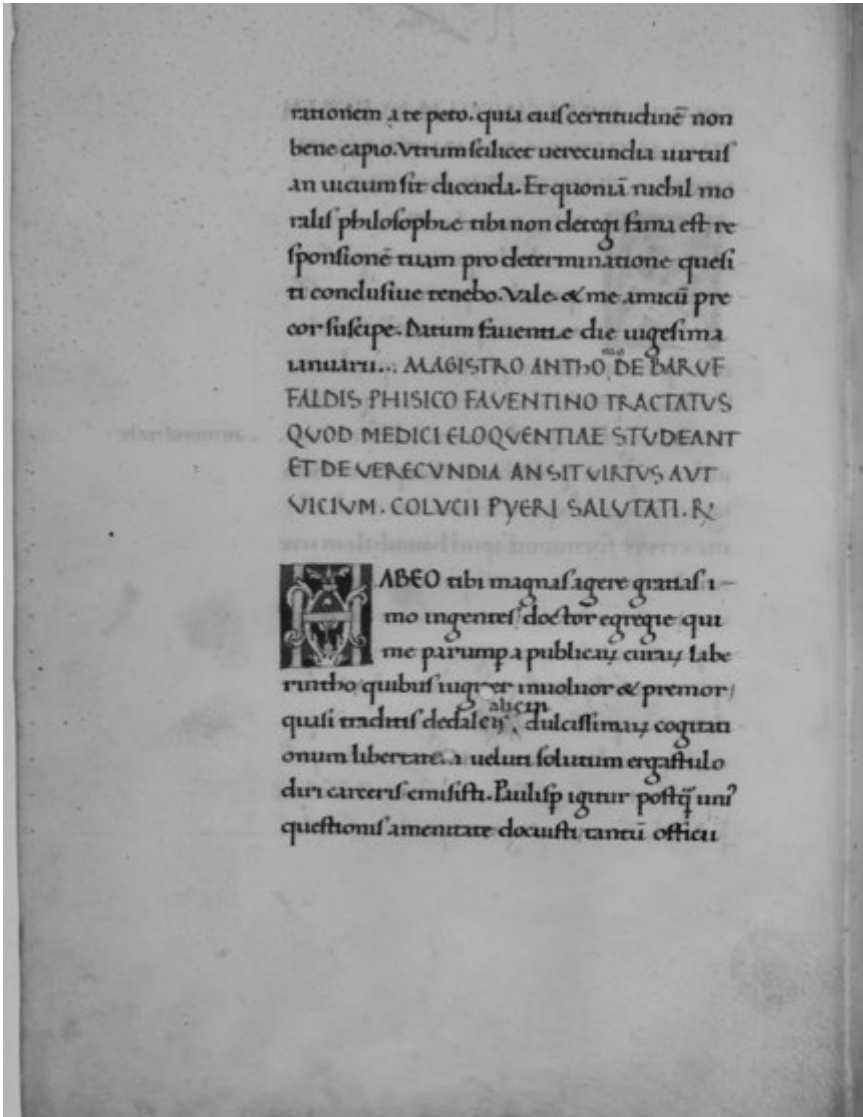 rationem a te peto. quia eius certitudinē non
bene capio. Vtrum scilicet uerecundia uirtus
an uicium sit dicenda. Et quoniā nichil mo
ralis philosophie tibi non detegi fama est re
sponsionē tuam pro determinatione quesi
ti conclusiue tenebo. Vale. & me amicū pre
cor suscipe. Datum fauentie die uigesima
ianuarii... MAGISTRO ANTHO nio DE BARUF
FALDIS PHISICO FAVENTINO TRACTATVS
QUOD MEDICI ELOQVENTIAE STUDEANT
ET DE VERECVNDIA AN SIT VIRTVS AVT
VICIVM. COLVCII PYERI SALVTATI. R̵
HABEO tibi magnas agere gratias i-
mo ingentes doctor egregie qui
me parumper a publicaꝝ curaꝝ labe
rintho quibus iugiter inuoluor & premor/
quasi traditis dedaleis alis in dulcissimaꝝ cogitati
onum libertate. a ueluti solutum ergastulo
diri carceris emisisti. Paulisꝑ igitur postq̄ uniꝰ
questionis amenitate docuisti tantū officii